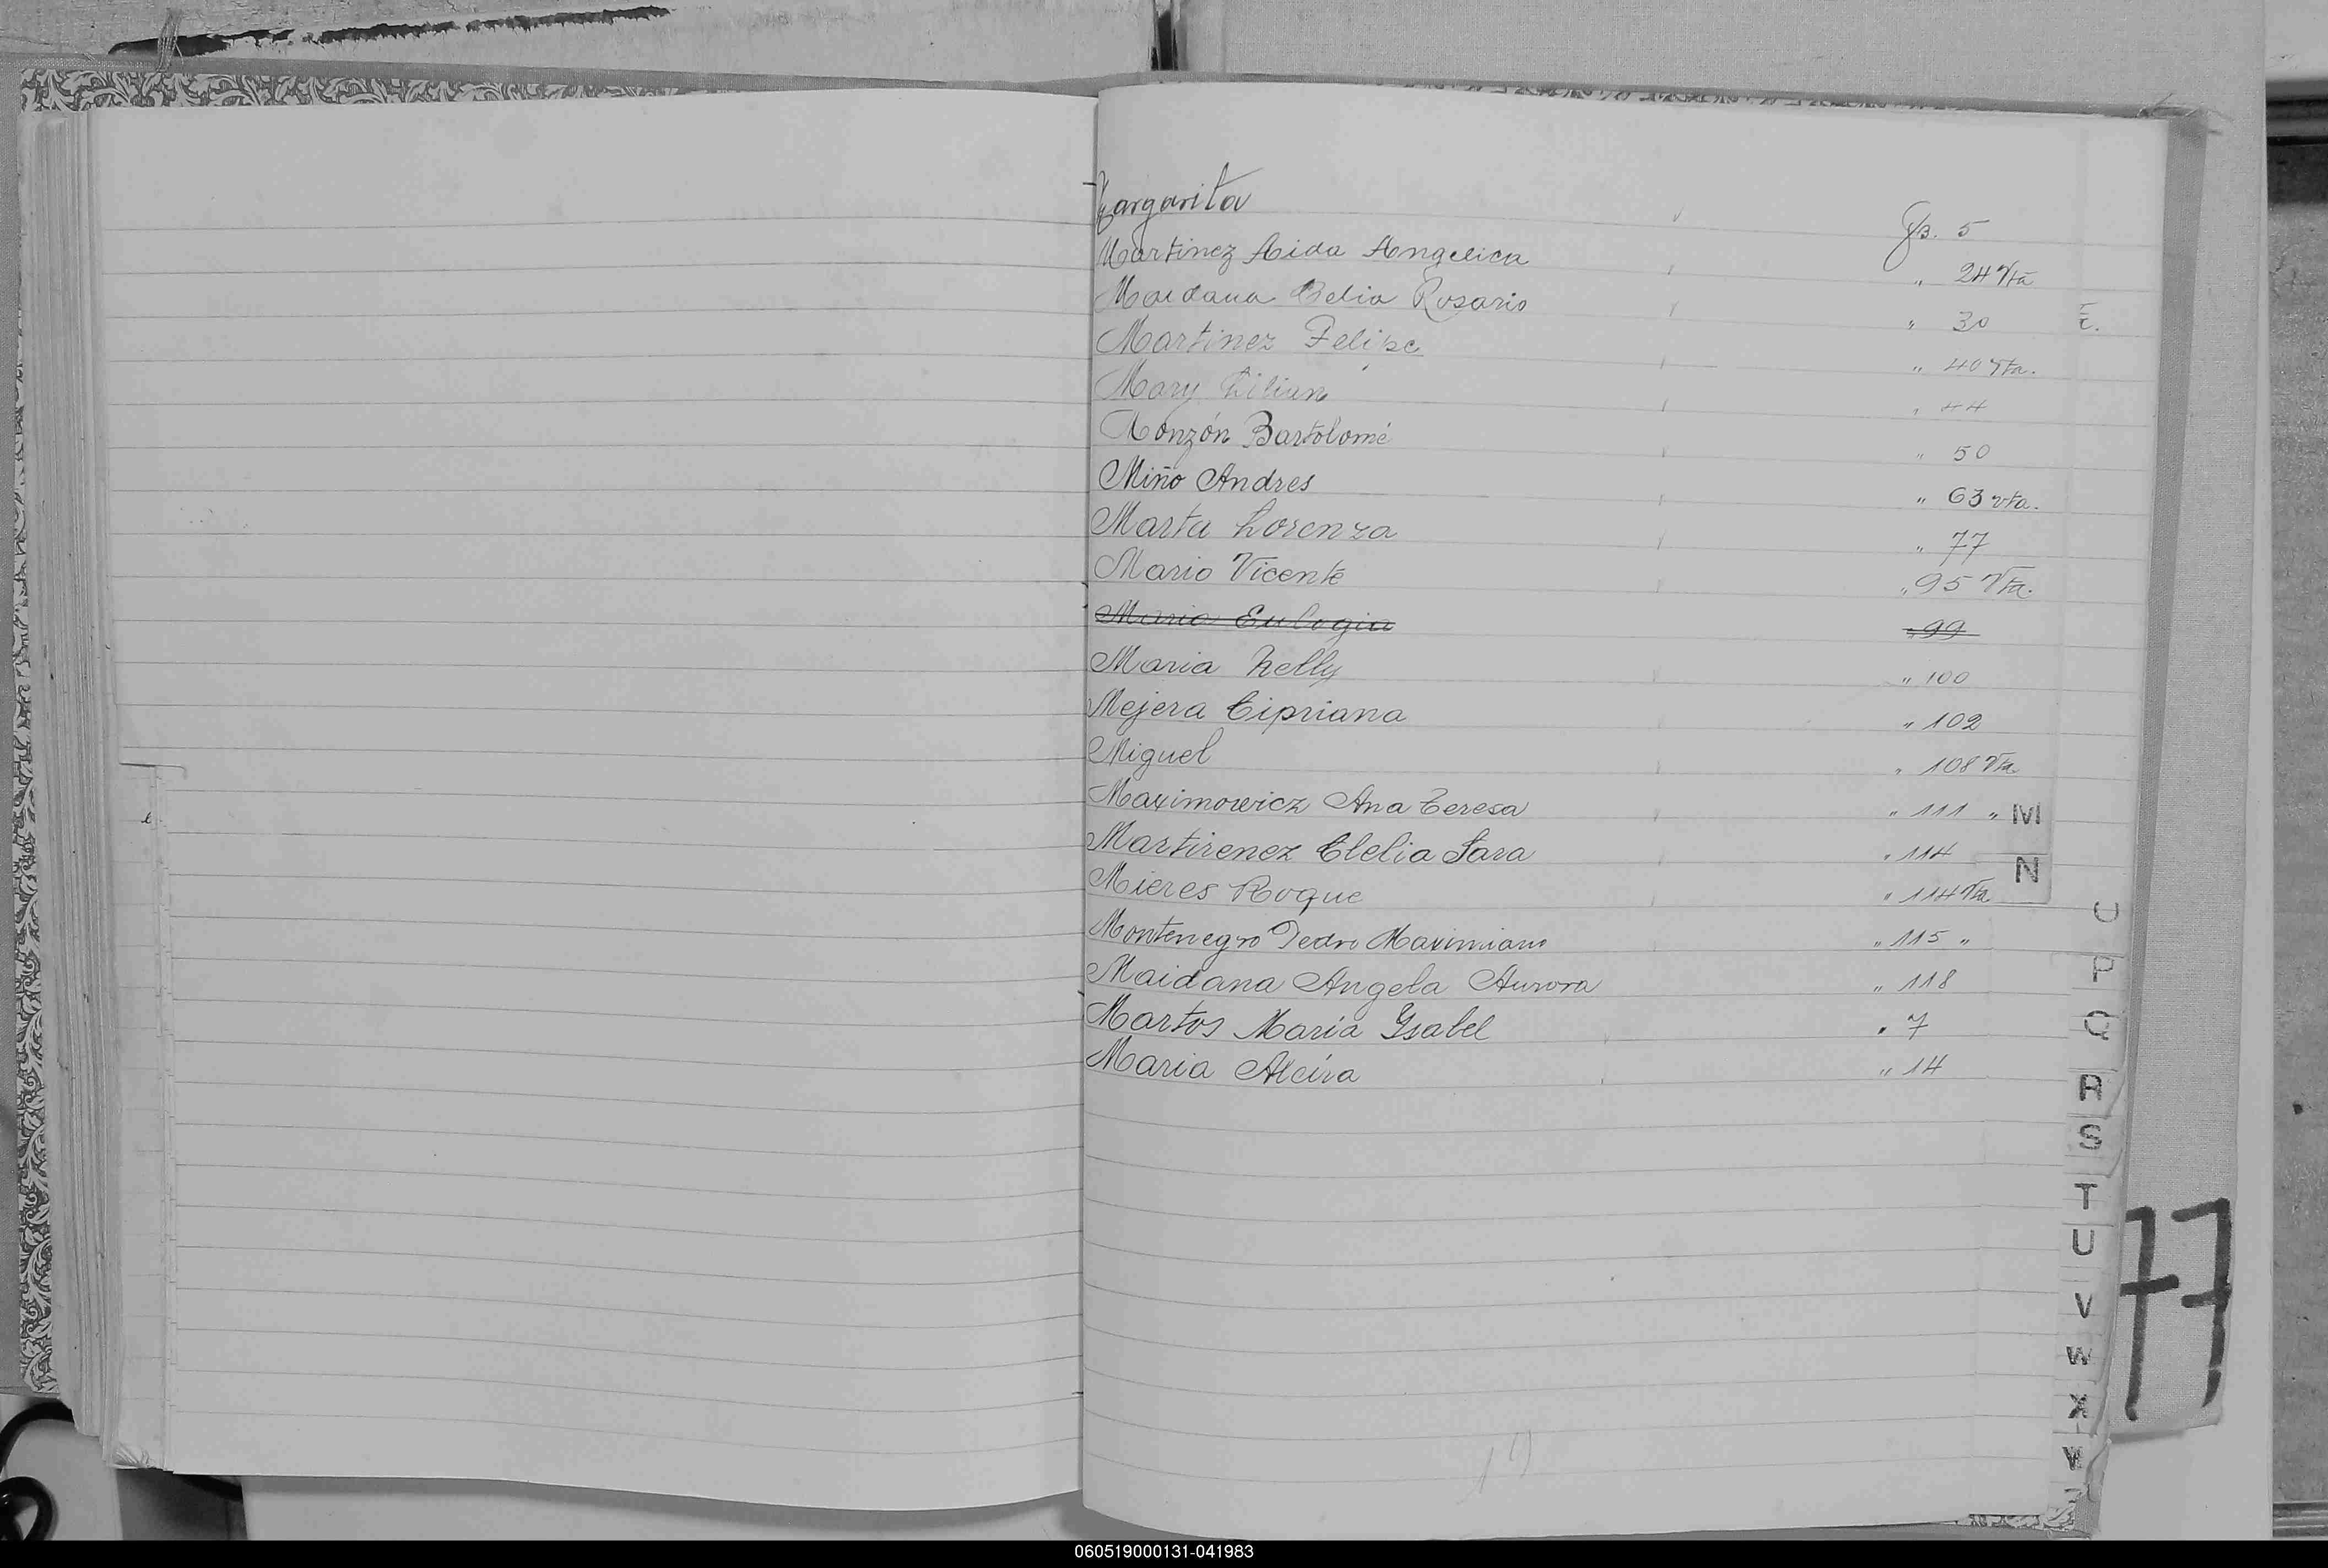 Margarita Fs. 5
Martinez Aida Angelica " 24 Vta
Maidana Celia Rosario " 30
Martinez Felipe " 40 Vta.
Mary Lilian " 44
Monzón Bartolomé " 50
Miño Andres " 63 vta.
Marta Lorenza " 77
Mario Vicente " 95 Vta.
Maria Eulogia " 99
Maria Nelly " 100
Mejera Cipriana " 102
Miguel " 108 Vta
Maximowicz Ana Teresa " 111 "
Martirenez Clelia Sara " 114
Mieres Roque " 114 Vta
Montenegro Pedro Maximiano " 115 "
Maidana Angela Aurora " 118
Martos Maria Ysabel " 7
Maria Alcira " 14
M
N
P
Q
R
S
T
U
V
W
X
Y
77
060519000131-041983